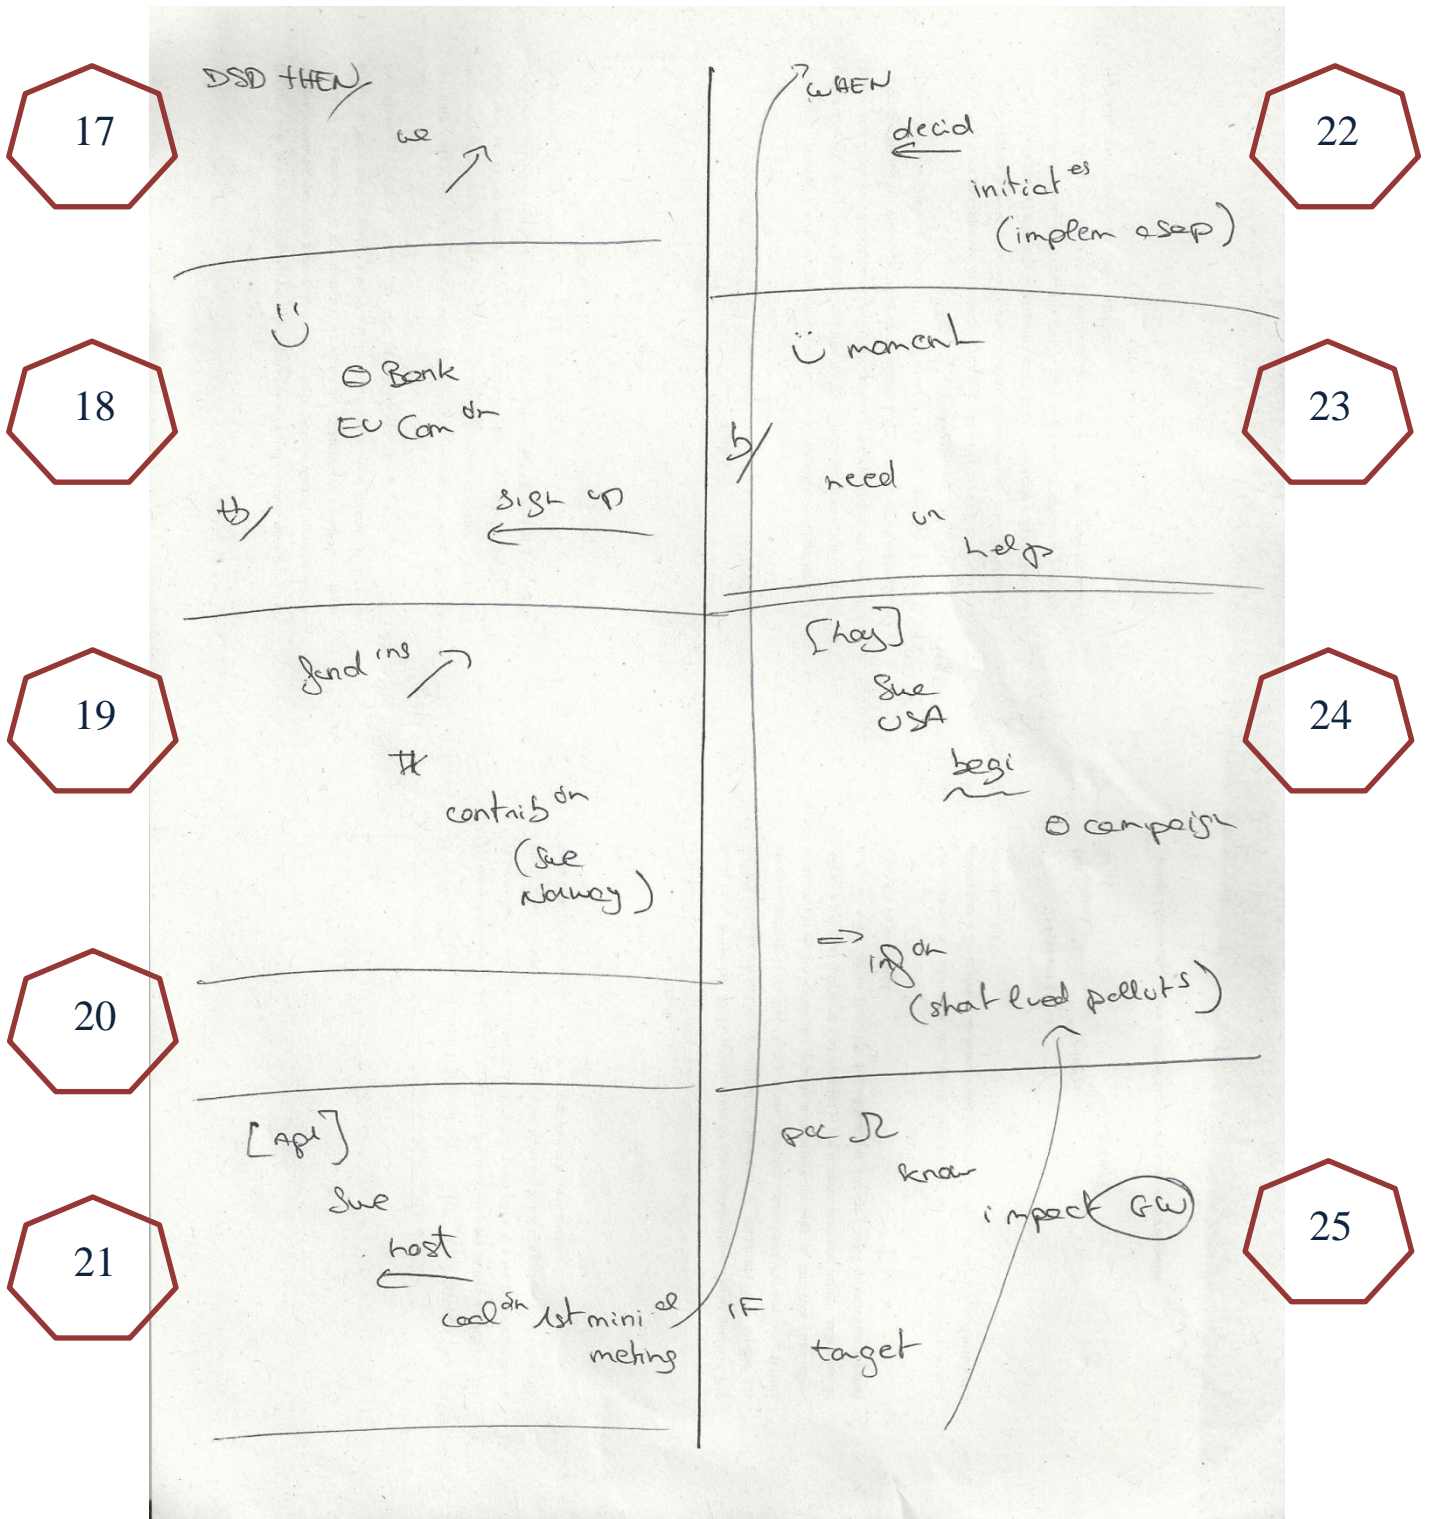 17
DSD THEN/
we
18
Bank
EU Com on
tb/
sign up
19
fund ing
contrib on
(Swe
Norway)
20
21
[Apl]
Swe
host
coal on 1st mini al
meting
22
WHEN
decid
initiat es
(implem asap)
23
moment
b/
need
un
help
24
[hoy]
Swe
USA
begi
campaign
⇒ inf on
(short lived pollut s)
25
pcc Ω
know
impact GW
IF
target